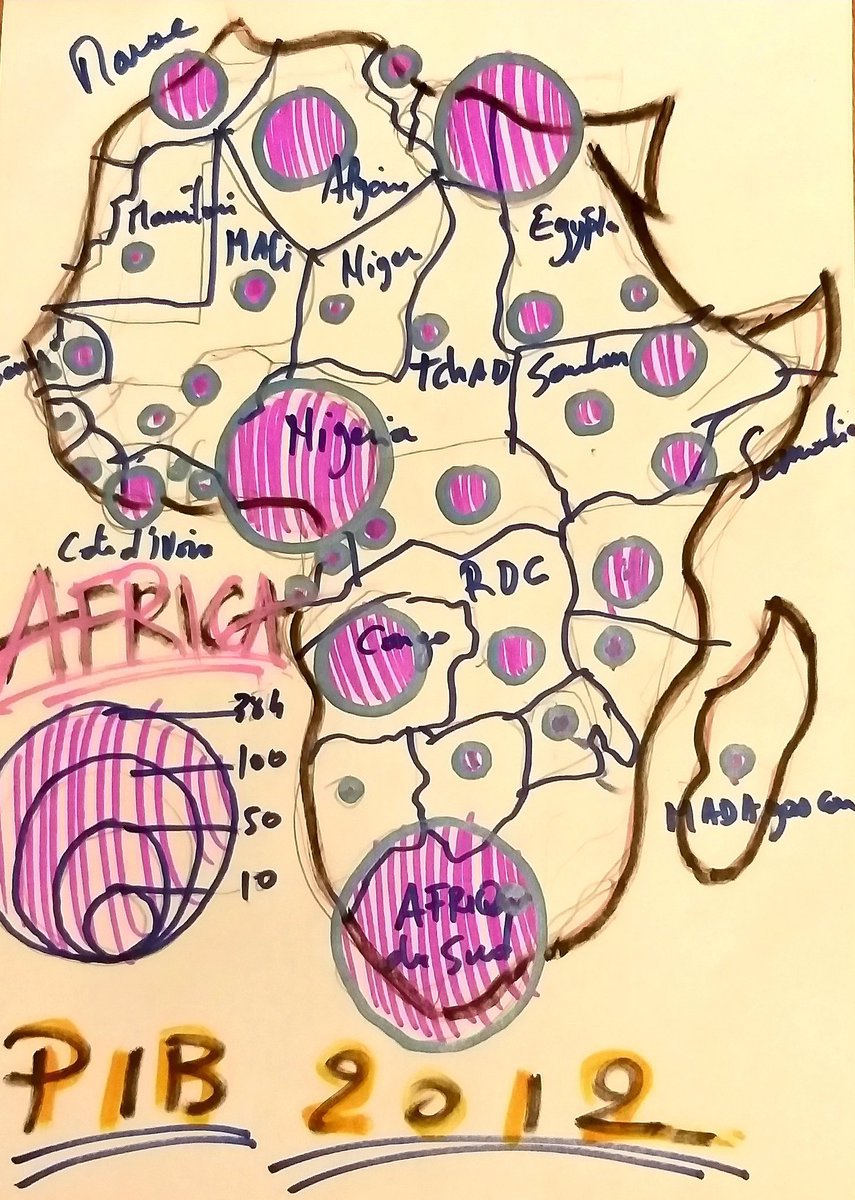 Maroc
Algérie
Mauritani
MALi
Niger
Egypte
tchAD
Soudan
Nigeria
Somalie
Cote d'Ivoire
RDC
AFRICA
Congo
384
100
50
10
MADAgascar
AFRIQ
du Sud
PIB 2012